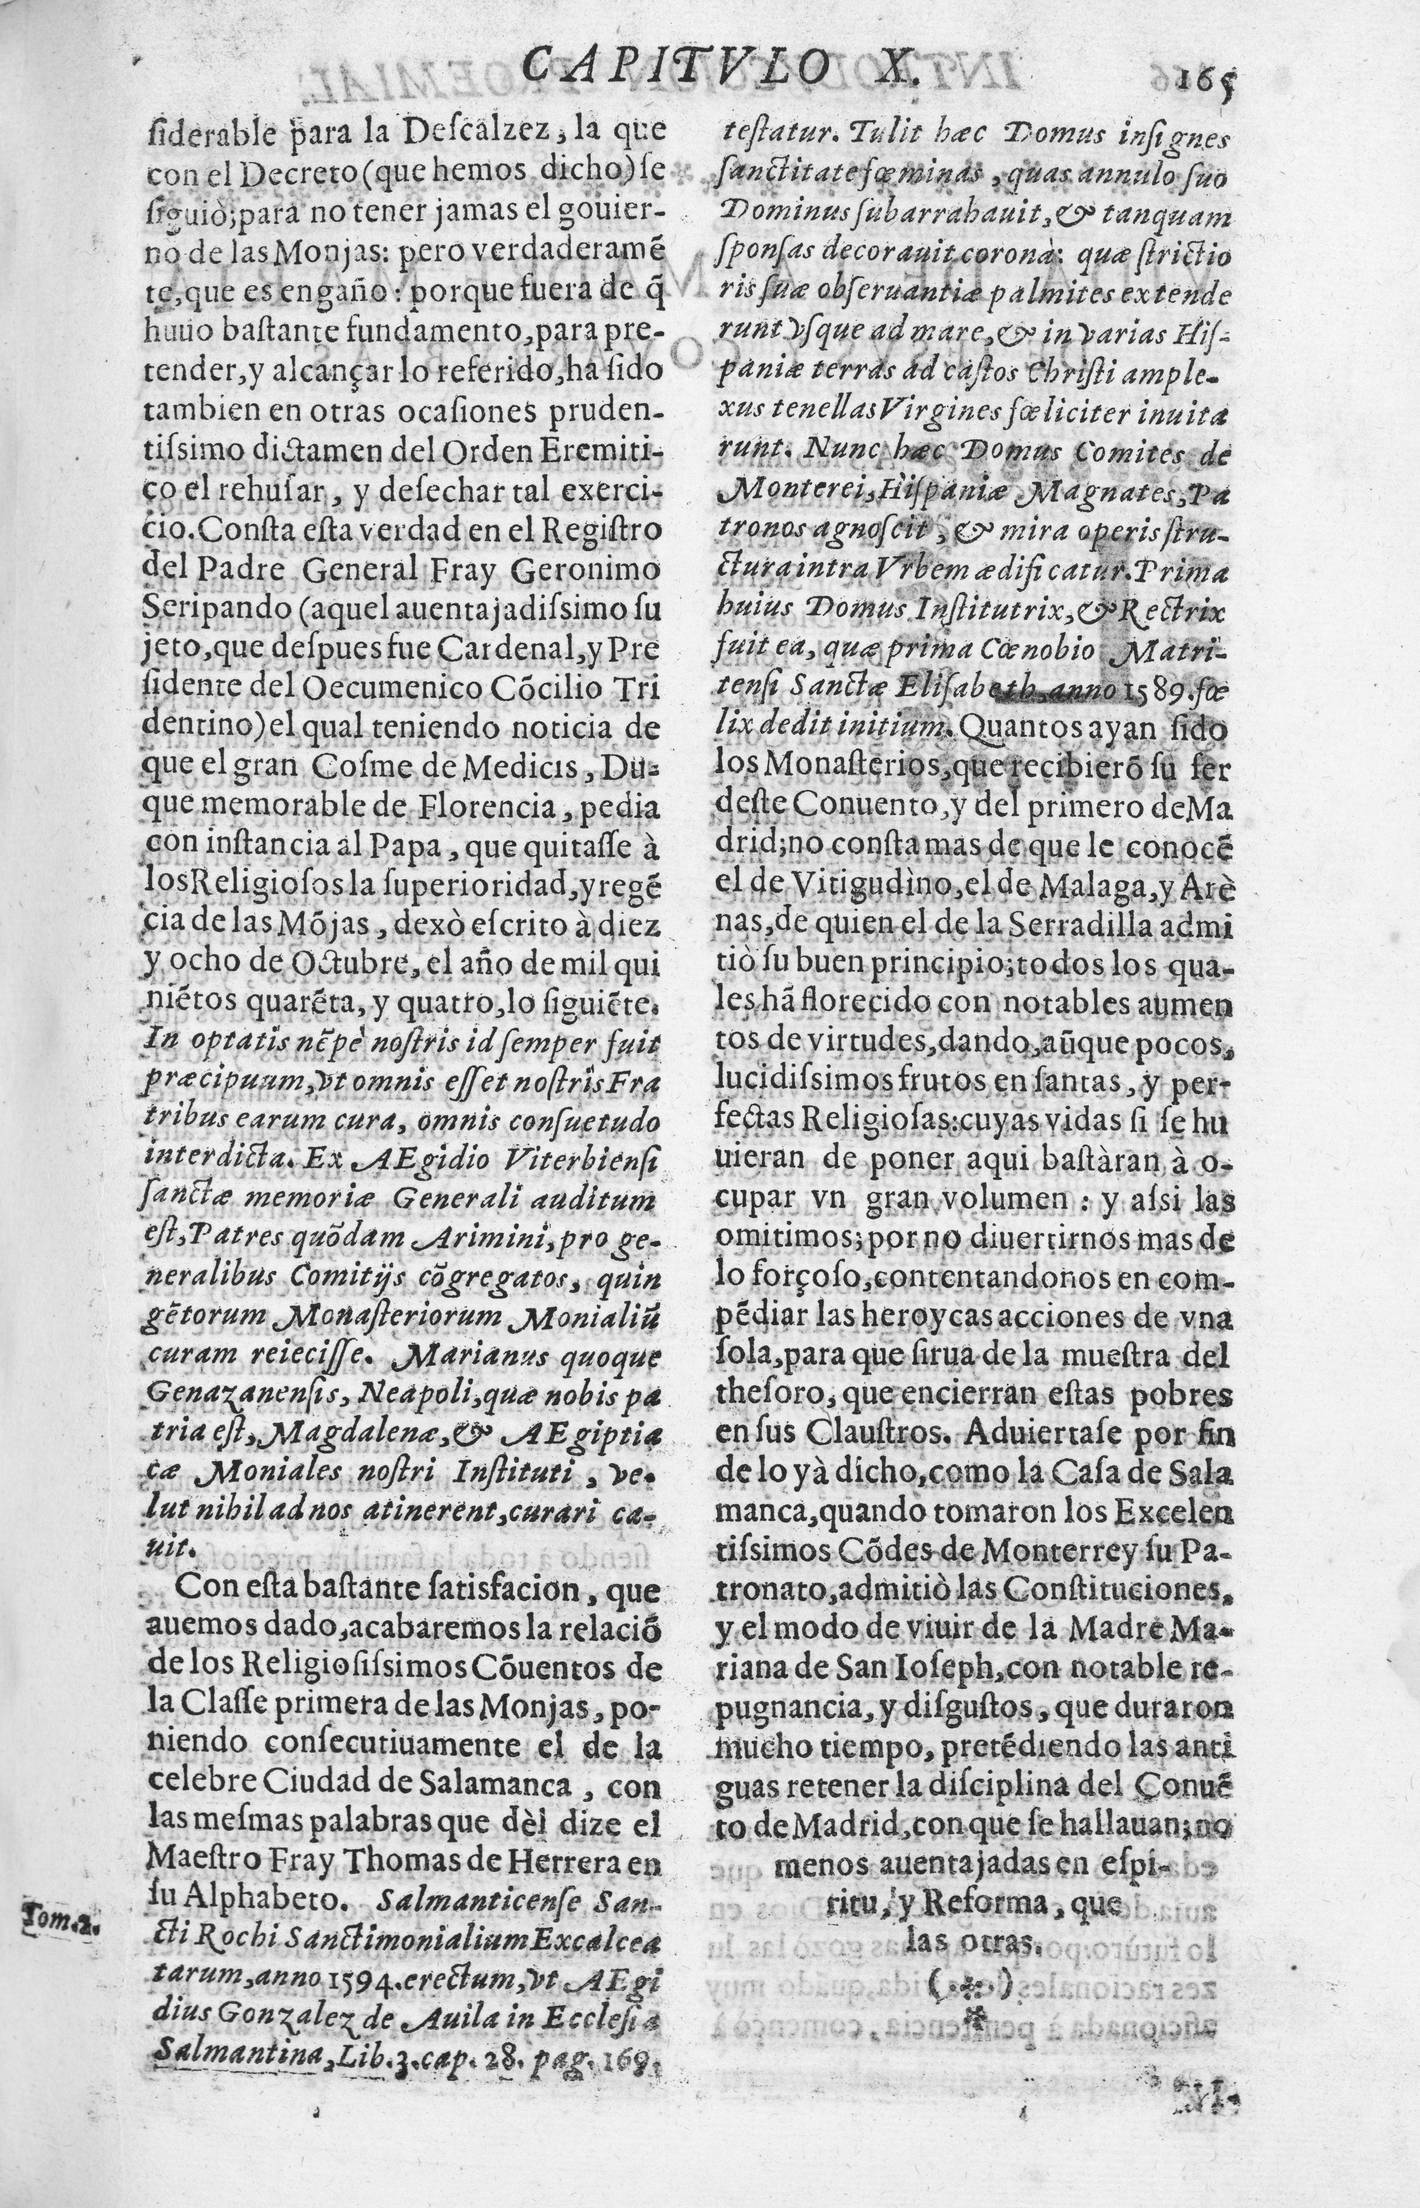 CAPITVLO X. 165
ſiderable para la Deſcalzez, la que
con el Decreto (que hemos dicho) ſe
ſiguiò; para no tener jamas el gouier-
no de las Monjas: pero verdaderamẽ
te, que es engaño: porque fuera de q̃
huuo baſtante fundamento, para pre-
tender, y alcançar lo referido, ha ſido
tambien en otras ocaſiones pruden-
tiſsimo dictamen del Orden Eremiti-
co el rehuſar, y deſechar tal exerci-
cio. Conſta eſta verdad en el Regiſtro
del Padre General Fray Geronimo
Seripando (aquel auentajadiſsimo ſu
jeto, que deſpues fue Cardenal, y Pre
ſidente del Oecumenico Cõcilio Tri
dentino) el qual teniendo noticia de
que el gran Coſme de Medicis, Du-
que memorable de Florencia, pedia
con inſtancia al Papa, que quitaſſe à
los Religioſos la ſuperioridad, y regẽ
cia de las Mõjas, dexò eſcrito à diez
y ocho de Octubre, el año de mil qui
niẽtos quarẽta, y quatro, lo ſiguiẽte.
In optatis nẽpè noſtris id ſemper fuit
præcipuum, vt omnis eſſet noſtris Fra
tribus earum cura, omnis conſuetudo
interdicta. Ex AEgidio Viterbienſi
ſanctæ memoriæ Generali auditum
eſt, Patres quõdam Arimini, pro ge-
neralibus Comitijs cõgregatos, quin
gẽtorum Monaſteriorum Monialiũ
curam reieciſſe. Marianus quoque
Genazanenſis, Neapoli, quæ nobis pa
tria eſt, Magdalenæ, & AEgiptia
cæ Moniales noſtri Inſtituti, ve-
lut nihil ad nos atinerent, curari ca-
uit.
Con eſta baſtante ſatisfacion, que
auemos dado, acabaremos la relaciõ
de los Religioſiſsimos Cõuentos de
la Claſſe primera de las Monjas, po-
niendo conſecutiuamente el de la
celebre Ciudad de Salamanca, con
las meſmas palabras que dèl dize el
Maeſtro Fray Thomas de Herrera en
ſu Alphabeto. Salmanticenſe San-
cti Rochi Sanctimonialium Excalcea
tarum, anno 1594. erectum, vt AEgi
dius Gonzalez de Auila in Eccleſia
Salmantina, Lib. 3. cap. 28. pag. 169.
Tom. 2.
teſtatur. Tulit hæc Domus inſignes
ſanctitate fœminas, quas annulo ſuo
Dominus ſubarrahauit, & tanquam
ſponſas decorauit coronà: quæ ſtrictio
ris ſuæ obſeruantiæ palmites extende
runt vſque ad mare, & in varias Hiſ-
paniæ terras ad caſtos Chriſti ample-
xus tenellas Virgines fœliciter inuita
runt. Nunc hæc Domus Comites de
Monterei, Hiſpaniæ Magnates, Pa
tronos agnoſcit, & mira operis ſtru-
ctura intra Vrbem ædificatur. Prima
huius Domus Inſtitutrix, & Rectrix
fuit ea, quæ prima Cœnobio Matri-
tenſi Sanctæ Eliſabeth, anno 1589. fœ
lix dedit initium. Quantos ayan ſido
los Monaſterios, que recibierõ ſu ſer
deſte Conuento, y del primero de Ma
drid; no conſta mas de que le conocẽ
el de Vitigudìno, el de Malaga, y Arè
nas, de quien el de la Serradilla admi
tiò ſu buen principio; todos los qua-
les hã florecido con notables aumen
tos de virtudes, dando, aũque pocos,
lucidiſsimos frutos en ſantas, y per-
fectas Religioſas: cuyas vidas ſi ſe hu
uieran de poner aqui baſtàran à o-
cupar vn gran volumen: y aſsi las
omitimos; por no diuertirnos mas de
lo forçoſo, contentandonos en com-
pẽdiar las heroycas acciones de vna
ſola, para que ſirua de la mueſtra del
theſoro, que encierran eſtas pobres
en ſus Clauſtros. Aduiertaſe por fin
de lo yà dicho, como la Caſa de Sala
manca, quando tomaron los Excelen
tiſsimos Cõdes de Monterrey ſu Pa-
tronato, admitiò las Conſtituciones,
y el modo de viuir de la Madre Ma-
riana de San Ioſeph, con notable re-
pugnancia, y diſguſtos, que duraron
mucho tiempo, pretẽdiendo las anti
guas retener la diſciplina del Conuẽ
to de Madrid, con que ſe hallauan; no
menos auentajadas en eſpi-
ritu, y Reforma, que
las otras.
(.*.)
*